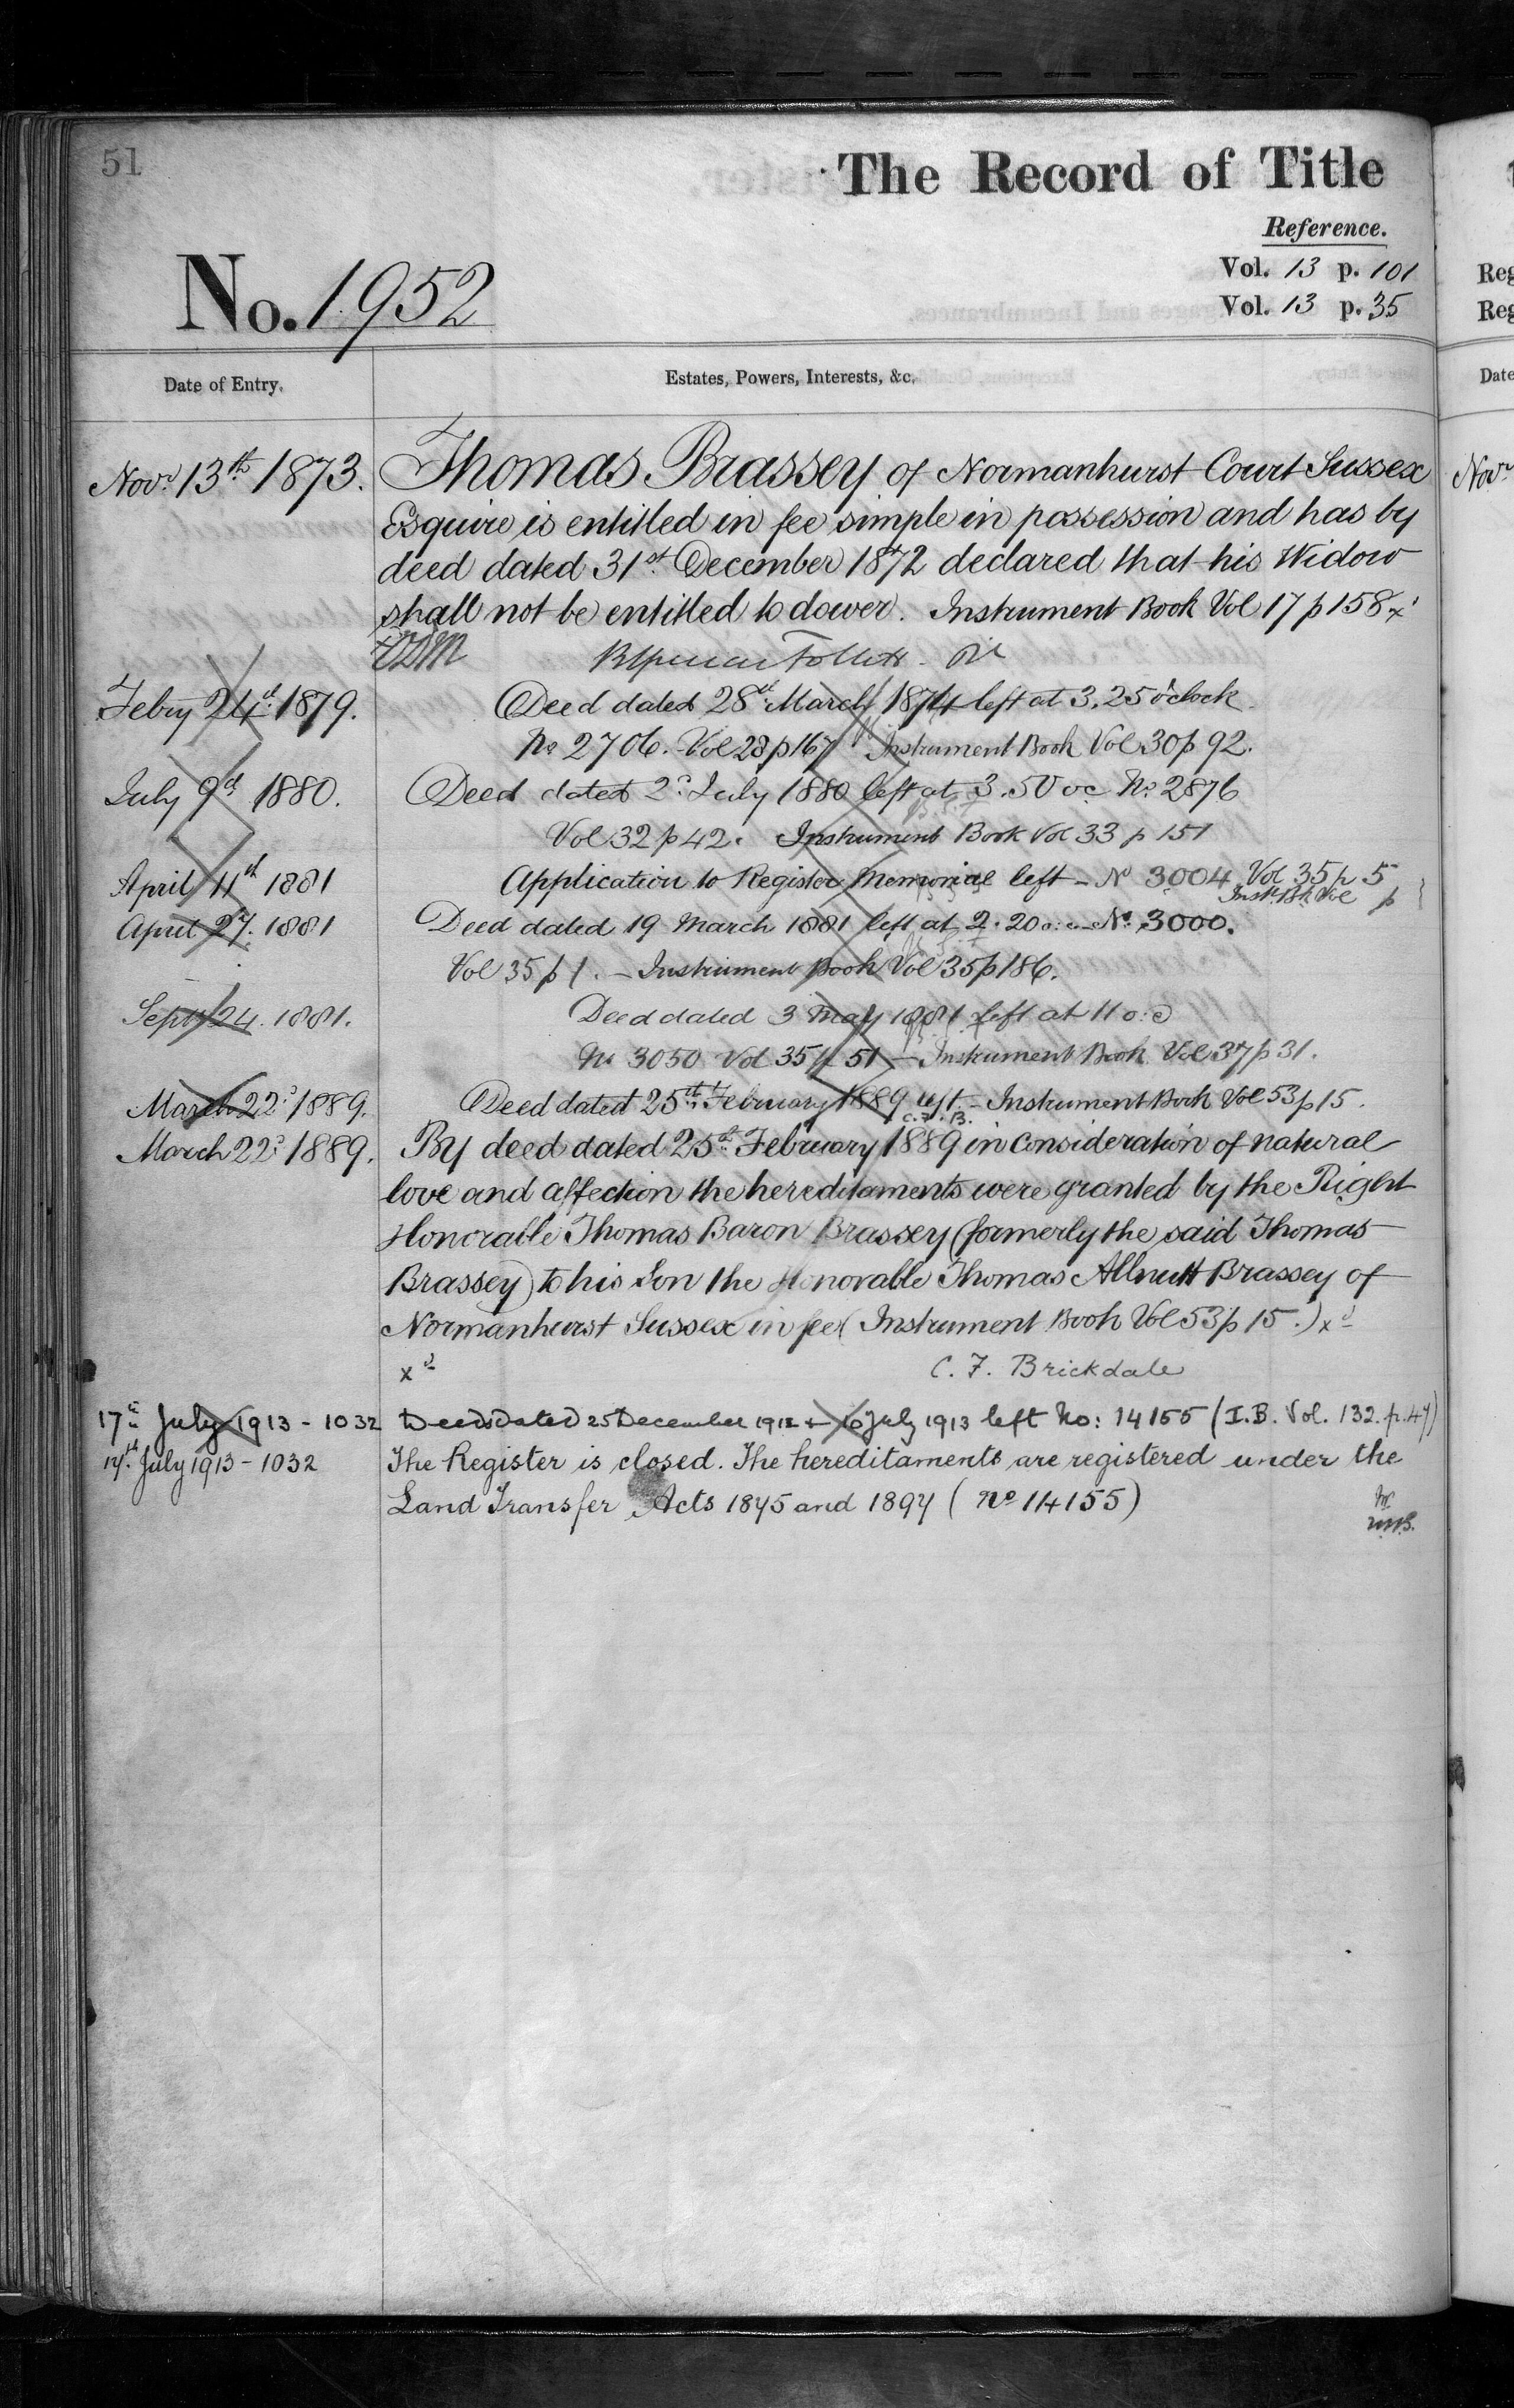 51
The Record of Title
Reference.
Vol. 13 p. 101
Vol. 13 p. 35
No. 1952
Date of Entry.
Estates, Powers, Interests, &c.
Novr 13th 1873. Thomas Brassey of Normanhurst Court Sussex
Esquire is entitled in fee simple in possession and has by
deed dated 31st December 1872 declared that his Widow
shall not be entitled to dower. Instrument Book Vol 17 p 158 x
Febry 24th 1879. Deed dated 28th March 1874 left at 3.25 o'clock
No 2706. Vol 28 p 167 Instrument Book Vol 30 p 92.
July 9th 1880. Deed dated 2d July 1880 left at 3.50 oc No 2876
Vol 32 p 42. Instrument Book Vol 33 p 151
April 11th 1881 Application to Register Memorial left - No 3004 Vol 35 p 5
Inst. Bk Vol p
April 27. 1881 Deed dated 19 March 1881 left at 2.20 o:c - No 3000.
Vol 35 p 1. - Instrument Book Vol 35 p 186.
Septr 24. 1881. Deed dated 3 May 1881 left at 11 o:c
No 3050 Vol 35 p 51 - Instrument Book Vol 37 p 31.
March 22d 1889. Deed dated 25th February 1889 left - Instrument Book Vol 53 p 15.
C.F.B.
March 22d 1889. By deed dated 25th February 1889 in consideration of natural
love and affection the hereditaments were granted by the Right
Honorable Thomas Baron Brassey (formerly the said Thomas
Brassey) to his Son the Honorable Thomas Allnutt Brassey of
Normanhurst Sussex in fee (Instrument Book Vol 53 p 15.) x d
x d C. F. Brickdale
17th July 1913 - 1032 Deeds dated 25 December 1912 + 10 July 1913 left No: 14155 (I.B. Vol. 132. p. 47)
17th July 1913 - 1032 The Register is closed. The hereditaments are registered under the
Land Transfer Acts 1875 and 1897 (No 14155)
Reg
Reg
Date
Novr